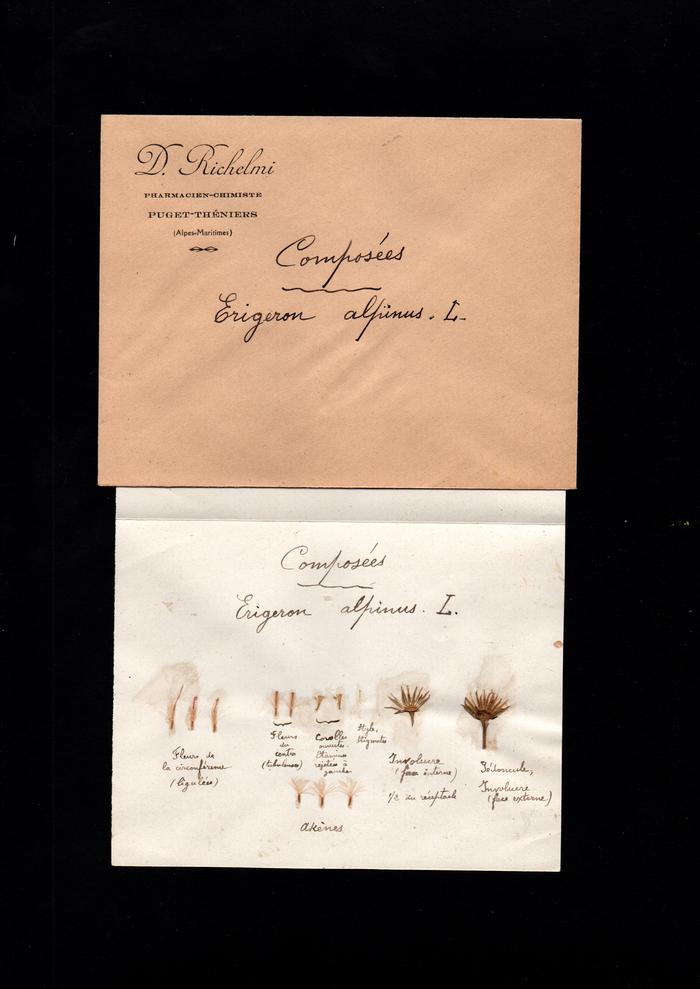 D. Richelmi
PHARMACIEN-CHIMISTE
PUGET-THÉNIERS
(Alpes-Maritimes)
Composées
Erigeron alpinus. L.
Composées
Erigeron alpinus. L.
Fleurs de
la circonférence
(ligulées)
Fleurs
du
centre
(tubuleuses)
Corolles
ouvertes.
Etamines
rejetées à
gauche
Style,
stigmates
Involucre
(face interne)
1/2 du réceptacle
Pédoncule,
Involucre
(face externe)
akènes